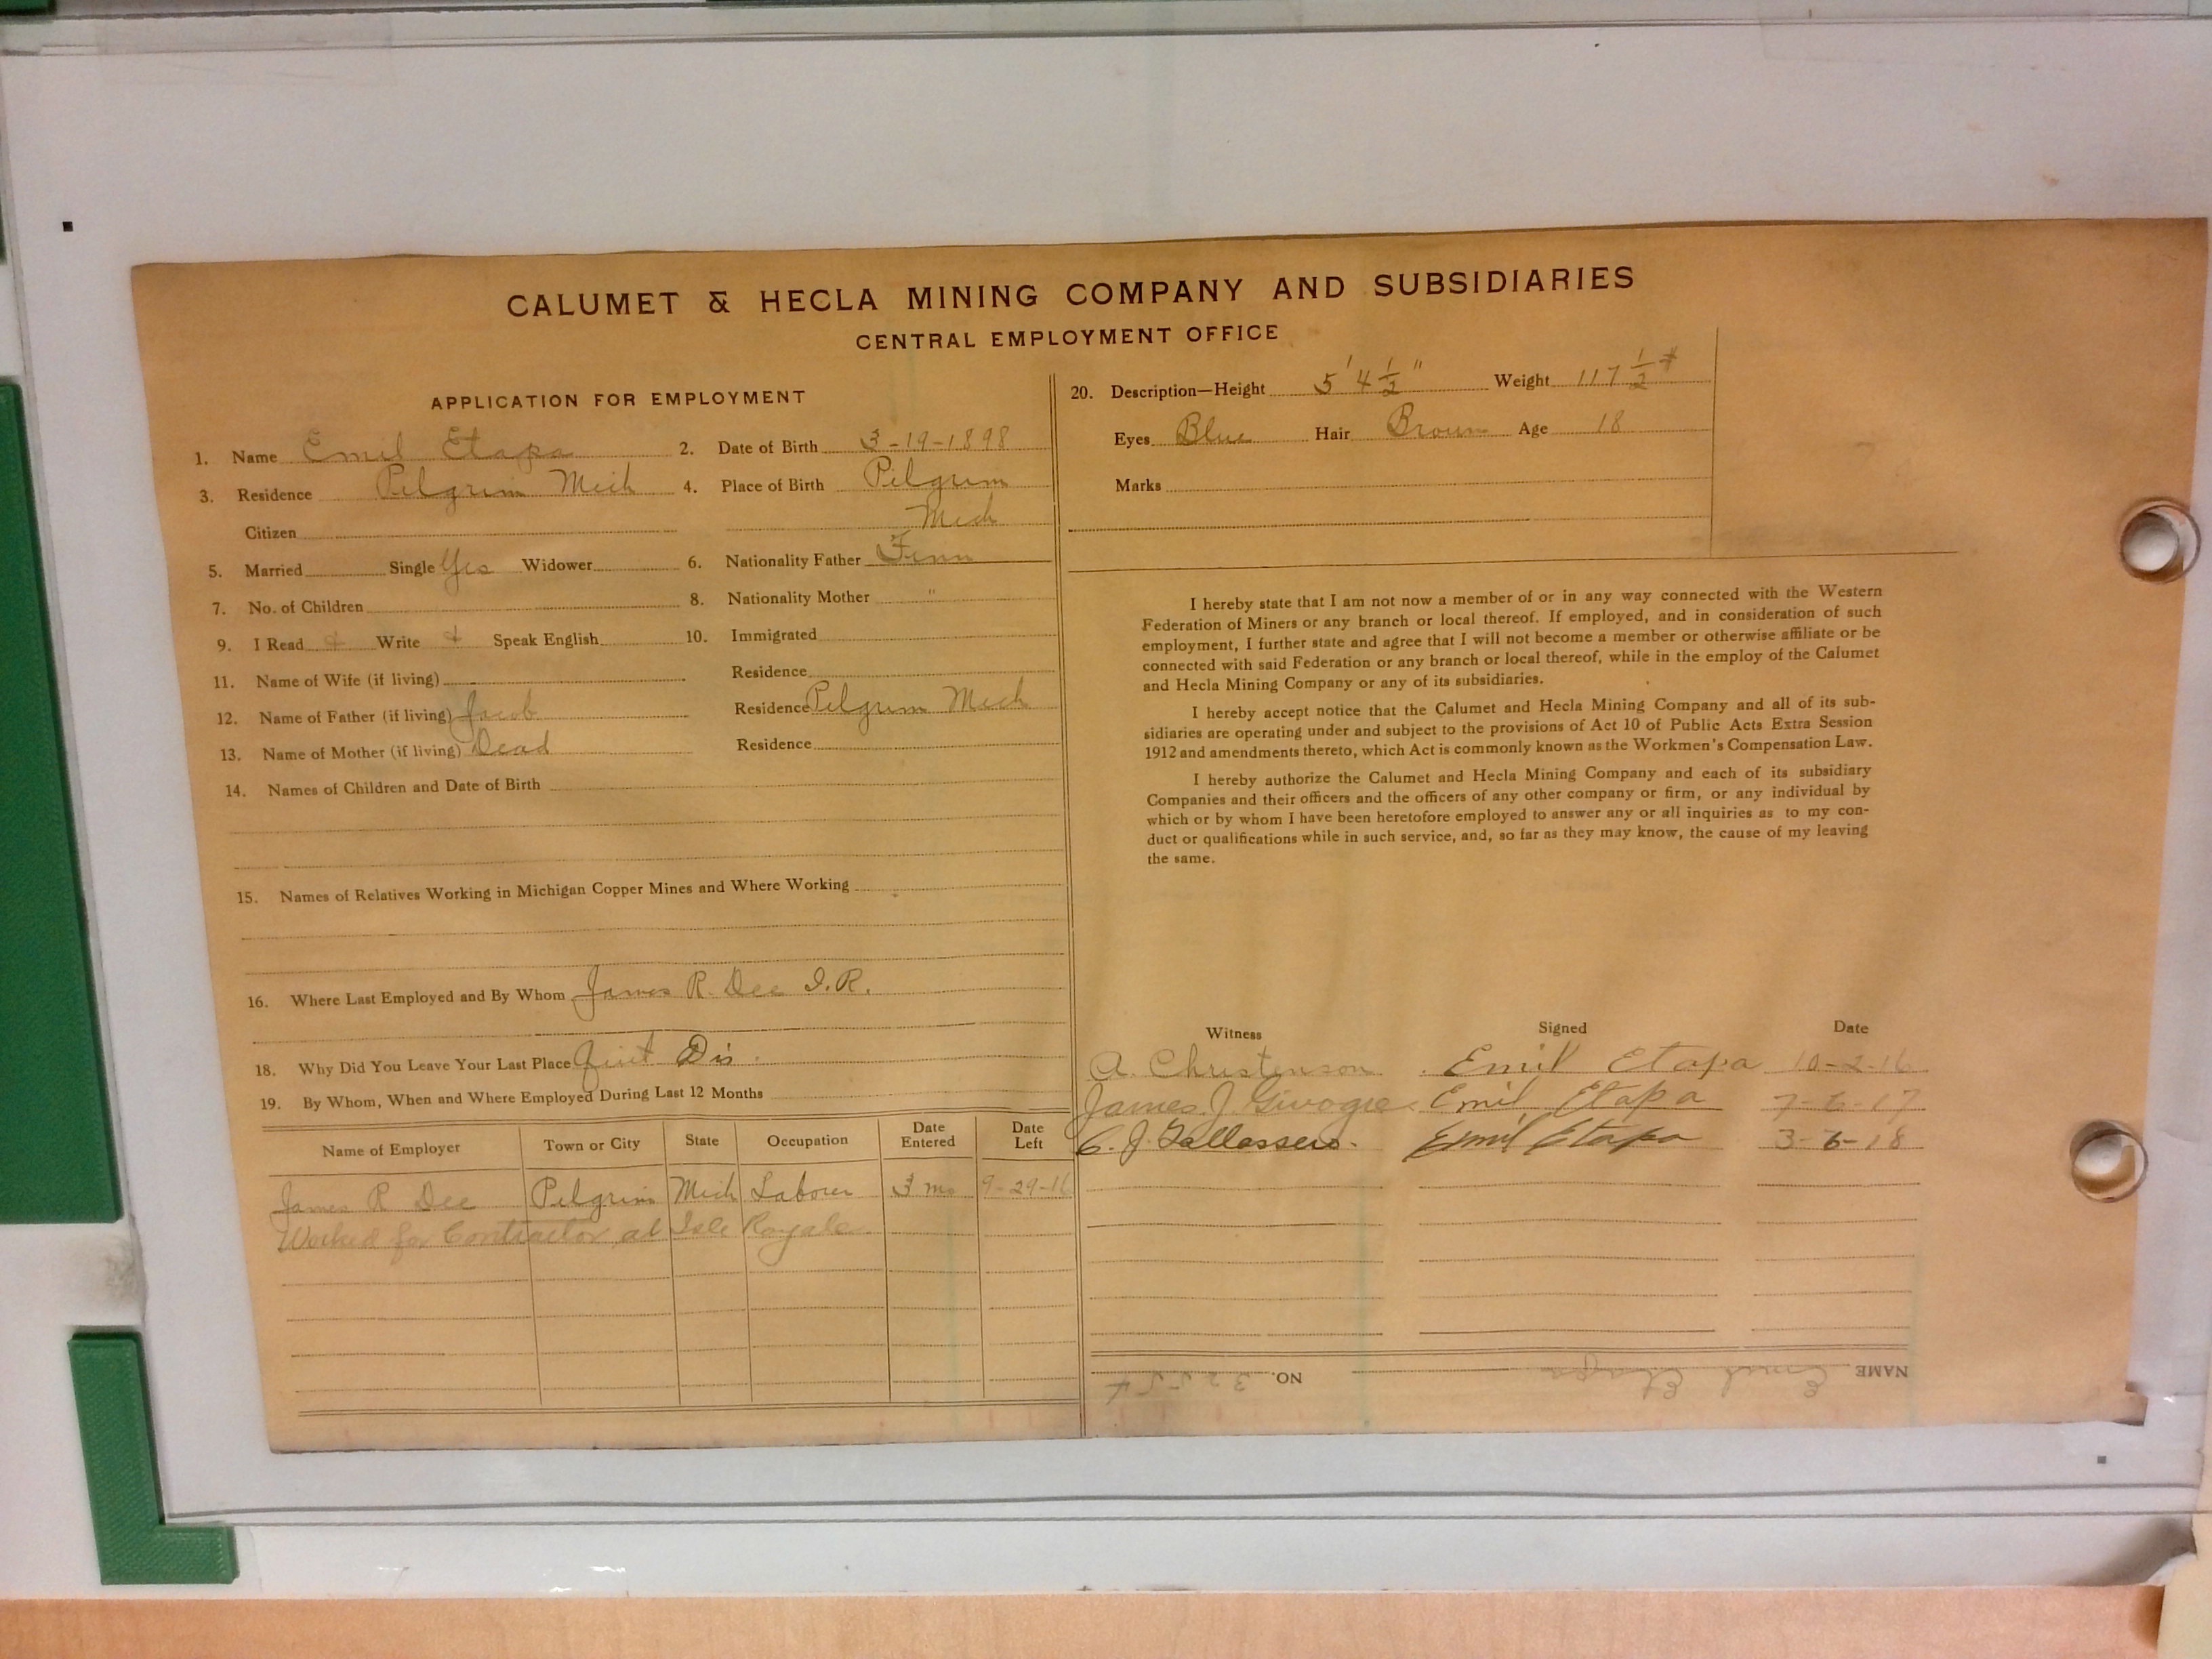 CALUMET & HECLA MINING COMPANY AND SUBSIDIARIES
CENTRAL EMPLOYMENT OFFICE
APPLICATION FOR EMPLOYMENT
1. Name Emil Etapa 2. Date of Birth 3-19-1898
3. Residence Pilgrim Mich 4. Place of Birth Pilgrim
Citizen Mich
5. Married Single Yes Widower 6. Nationality Father Finn
7. No. of Children 8. Nationality Mother "
9. I Read + Write + Speak English 10. Immigrated
11. Name of Wife (if living) Residence
12. Name of Father (if living) Jacob Residence Pilgrim Mich
13. Name of Mother (if living) Dead Residence
14. Names of Children and Date of Birth
15. Names of Relatives Working in Michigan Copper Mines and Where Working
16. Where Last Employed and By Whom James R. Dee I.R.
18. Why Did You Leave Your Last Place Quit Dis.
19. By Whom, When and Where Employed During Last 12 Months
Name of Employer Town or City State Occupation Date Entered Date Left
James R Dee Pilgrim Mich Labour 3 mo 9-29-16
Worked for Contractor at Isle Royale
20. Description—Height 5' 4 1/2" Weight 117 1/2 #
Eyes Blue Hair Brown Age 18
Marks
I hereby state that I am not now a member of or in any way connected with the Western
Federation of Miners or any branch or local thereof. If employed, and in consideration of such
employment, I further state and agree that I will not become a member or otherwise affiliate or be
connected with said Federation or any branch or local thereof, while in the employ of the Calumet
and Hecla Mining Company or any of its subsidiaries.
I hereby accept notice that the Calumet and Hecla Mining Company and all of its sub-
sidiaries are operating under and subject to the provisions of Act 10 of Public Acts Extra Session
1912 and amendments thereto, which Act is commonly known as the Workmen's Compensation Law.
I hereby authorize the Calumet and Hecla Mining Company and each of its subsidiary
Companies and their officers and the officers of any other company or firm, or any individual by
which or by whom I have been heretofore employed to answer any or all inquiries as to my con-
duct or qualifications while in such service, and, so far as they may know, the cause of my leaving
the same.
Witness Signed Date
A. Christenson Emil Etapa 10-2-16
James J. Emil Etapa
C. J. Emil Etapa 3-6-18
NAME Emil Etapa NO.